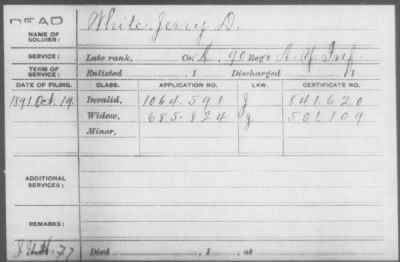 DEAD
NAME OF SOLDIER: White, Jerry D.
SERVICE: Late rank, Co. K, 90 Reg't N.Y. Inf.
TERM OF SERVICE: Enlisted , 1 Discharged , 1
DATE OF FILING. CLASS. APPLICATION NO. LAW. CERTIFICATE NO.
1891 Oct. 19. Invalid, 1064.591 J 841.620
Widow, 685.824 J. 501,109
Minor,
ADDITIONAL SERVICES:
REMARKS:
Died , 1 , at